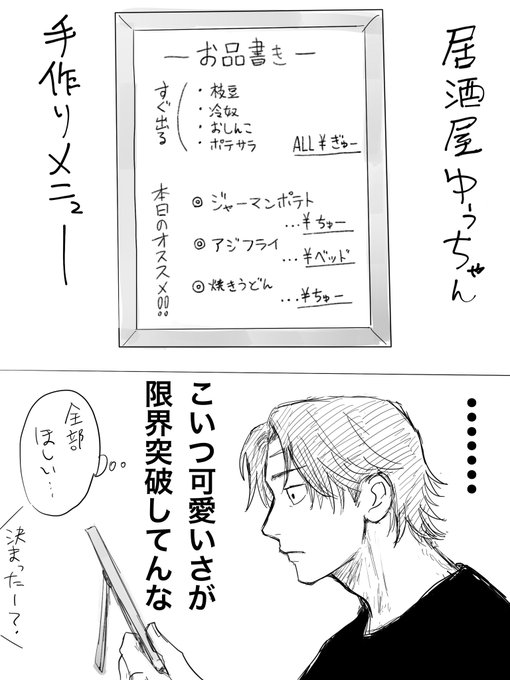 居酒屋ゆうちゃん
手作りメニュー
ーお品書きー
すぐ出る
・枝豆
・冷奴
・おしんこ
・ポテサラ
ALL¥ぎゅー
本日のオススメ!!
◎ジャーマンポテト
...¥ちゅー
◎アジフライ
...¥ベッド
◎焼きうどん
...¥ちゅー
・・・・・・・
こいつ可愛いさが
限界突破してんな
全部
ほしい…
決まったー?